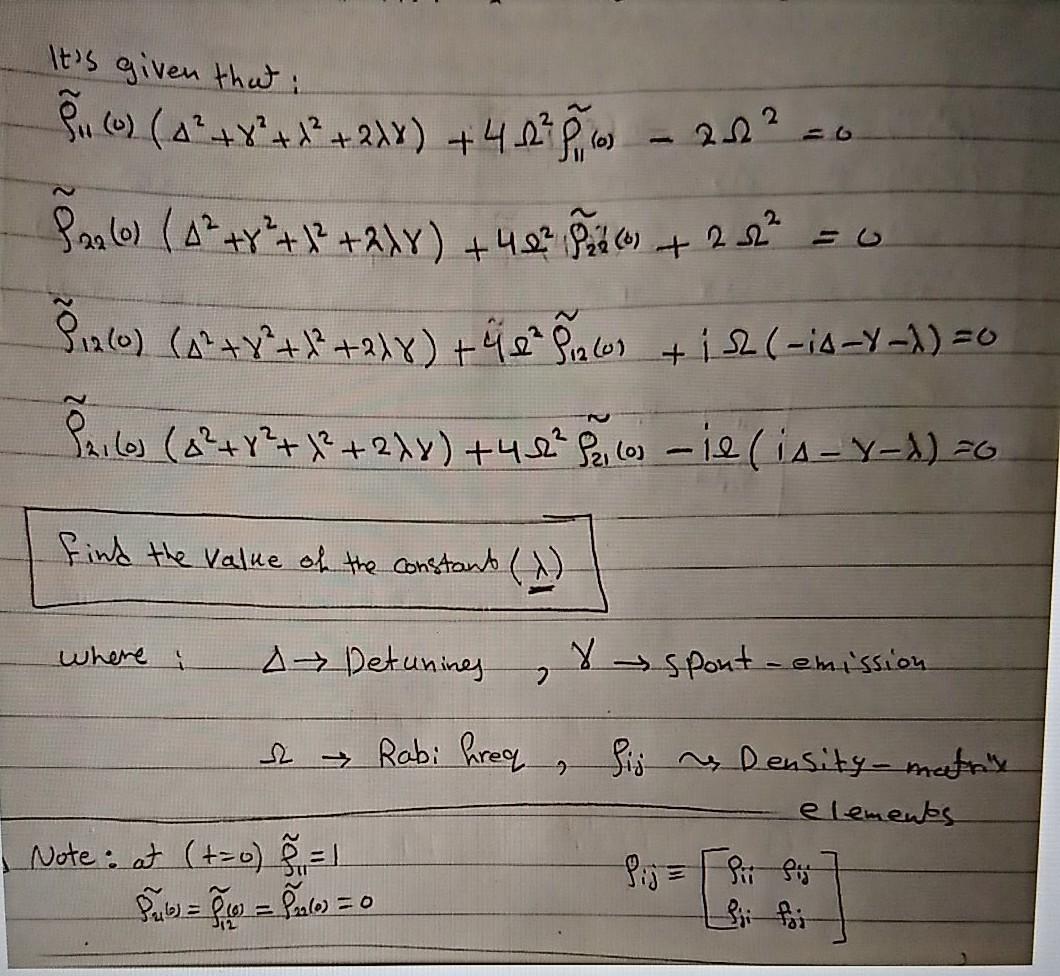 It's given that;
ρ̃₁₁(0) (Δ²+γ²+λ²+2λγ) + 4Ω² ρ̃₁₁(0) − 2Ω² = 0
ρ̃₂₂(0) (Δ²+γ²+λ²+2λγ) + 4Ω² ρ̃₂₂(0) + 2Ω² = 0
ρ̃₁₂(0) (Δ²+γ²+λ²+2λγ) + 4Ω² ρ̃₁₂(0) + iΩ(−iΔ−γ−λ) = 0
ρ̃₂₁(0) (Δ²+γ²+λ²+2λγ) + 4Ω² ρ̃₂₁(0) − iΩ(iΔ−γ−λ) = 0
Find the value of the constant (λ)
where ; Δ → Detunings , γ → spont-emission
Ω → Rabi freq , ρij ⇝ Density-matrix
elements
Note: at (t=0) ρ̃₁₁ = 1
ρ̃₂₁(0) = ρ̃₁₂(0) = ρ̃₂₂(0) = 0
ρij ≡ [ρii ρij
ρji ρjj]